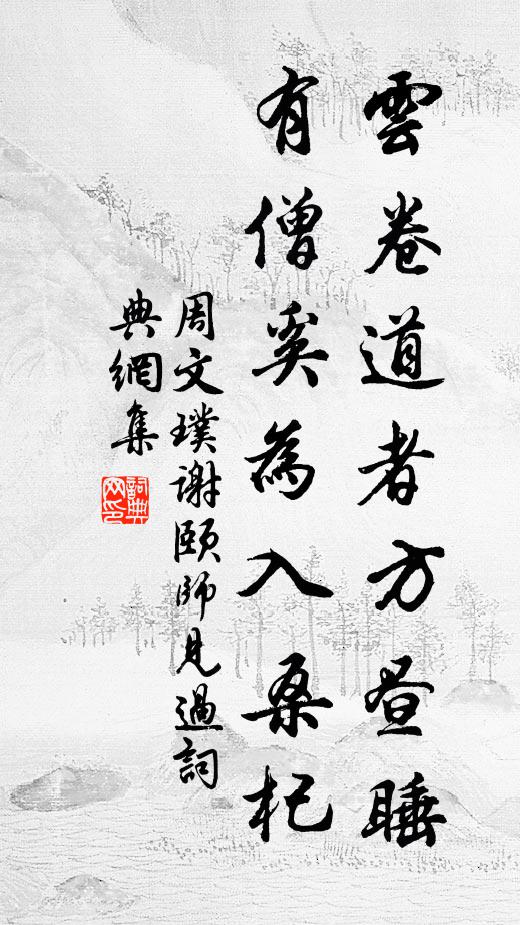 雲卷道者方晝睡
有僧奚為入桑杞
周文璞謝頤師見過詞
典網集
詞典网印